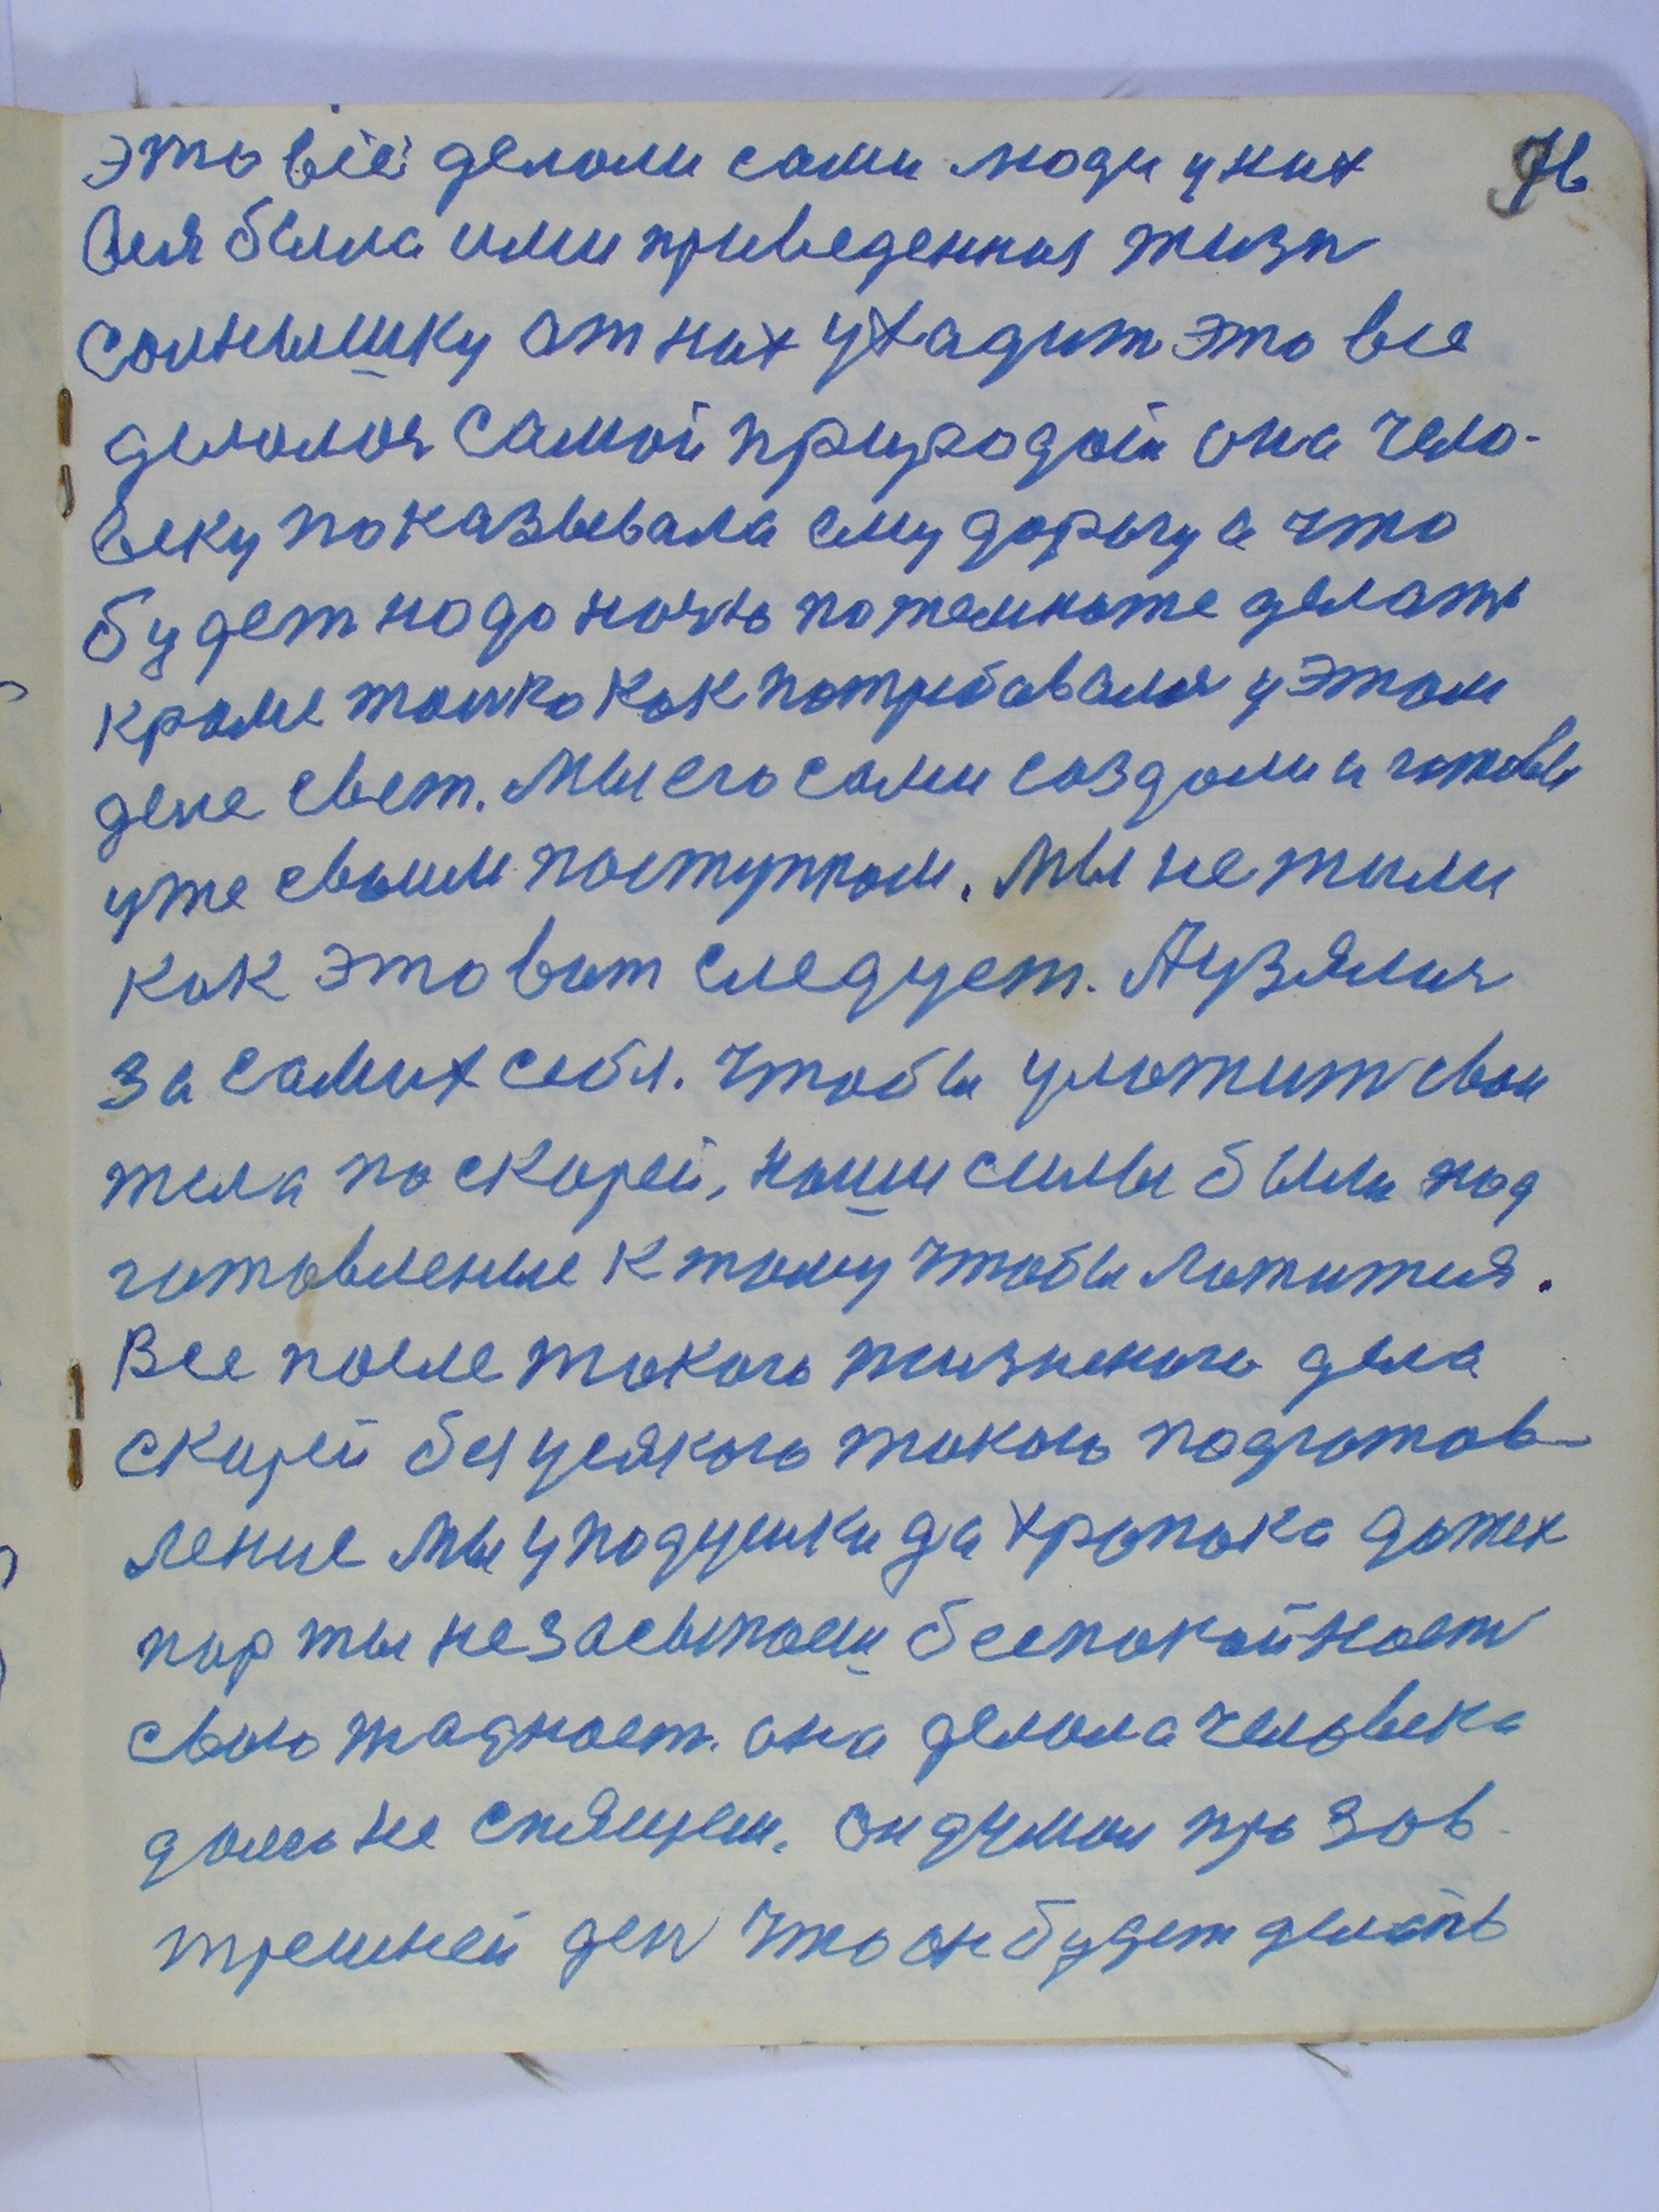 это всё делали сами люди у них
Вся была ими приведенная жизн
солнышку от них ухадит это все
делалося самой природой она чело-
веку показывала ему дорогу а что
будет надо ночью по темноте делать
кроме толко как потребовался у этом
деле свет. Мы его сами создали и готовы
уже своим поступком. Мы не жили
как это вот следует. А узялися
за самих себя. Чтобы уложит свои
тела по скорей, наши силы были под
готовленые к тому чтобы ложится.
Все после такого жизненого дела
скорей без усякого такого подготов-
ление мы у подушки да храпока до тех
пор ты не засыпаеш беспокойност
свою жадност. она делала человека
долго не спящем. Он думал про зов-
трешней ден что он будет делать